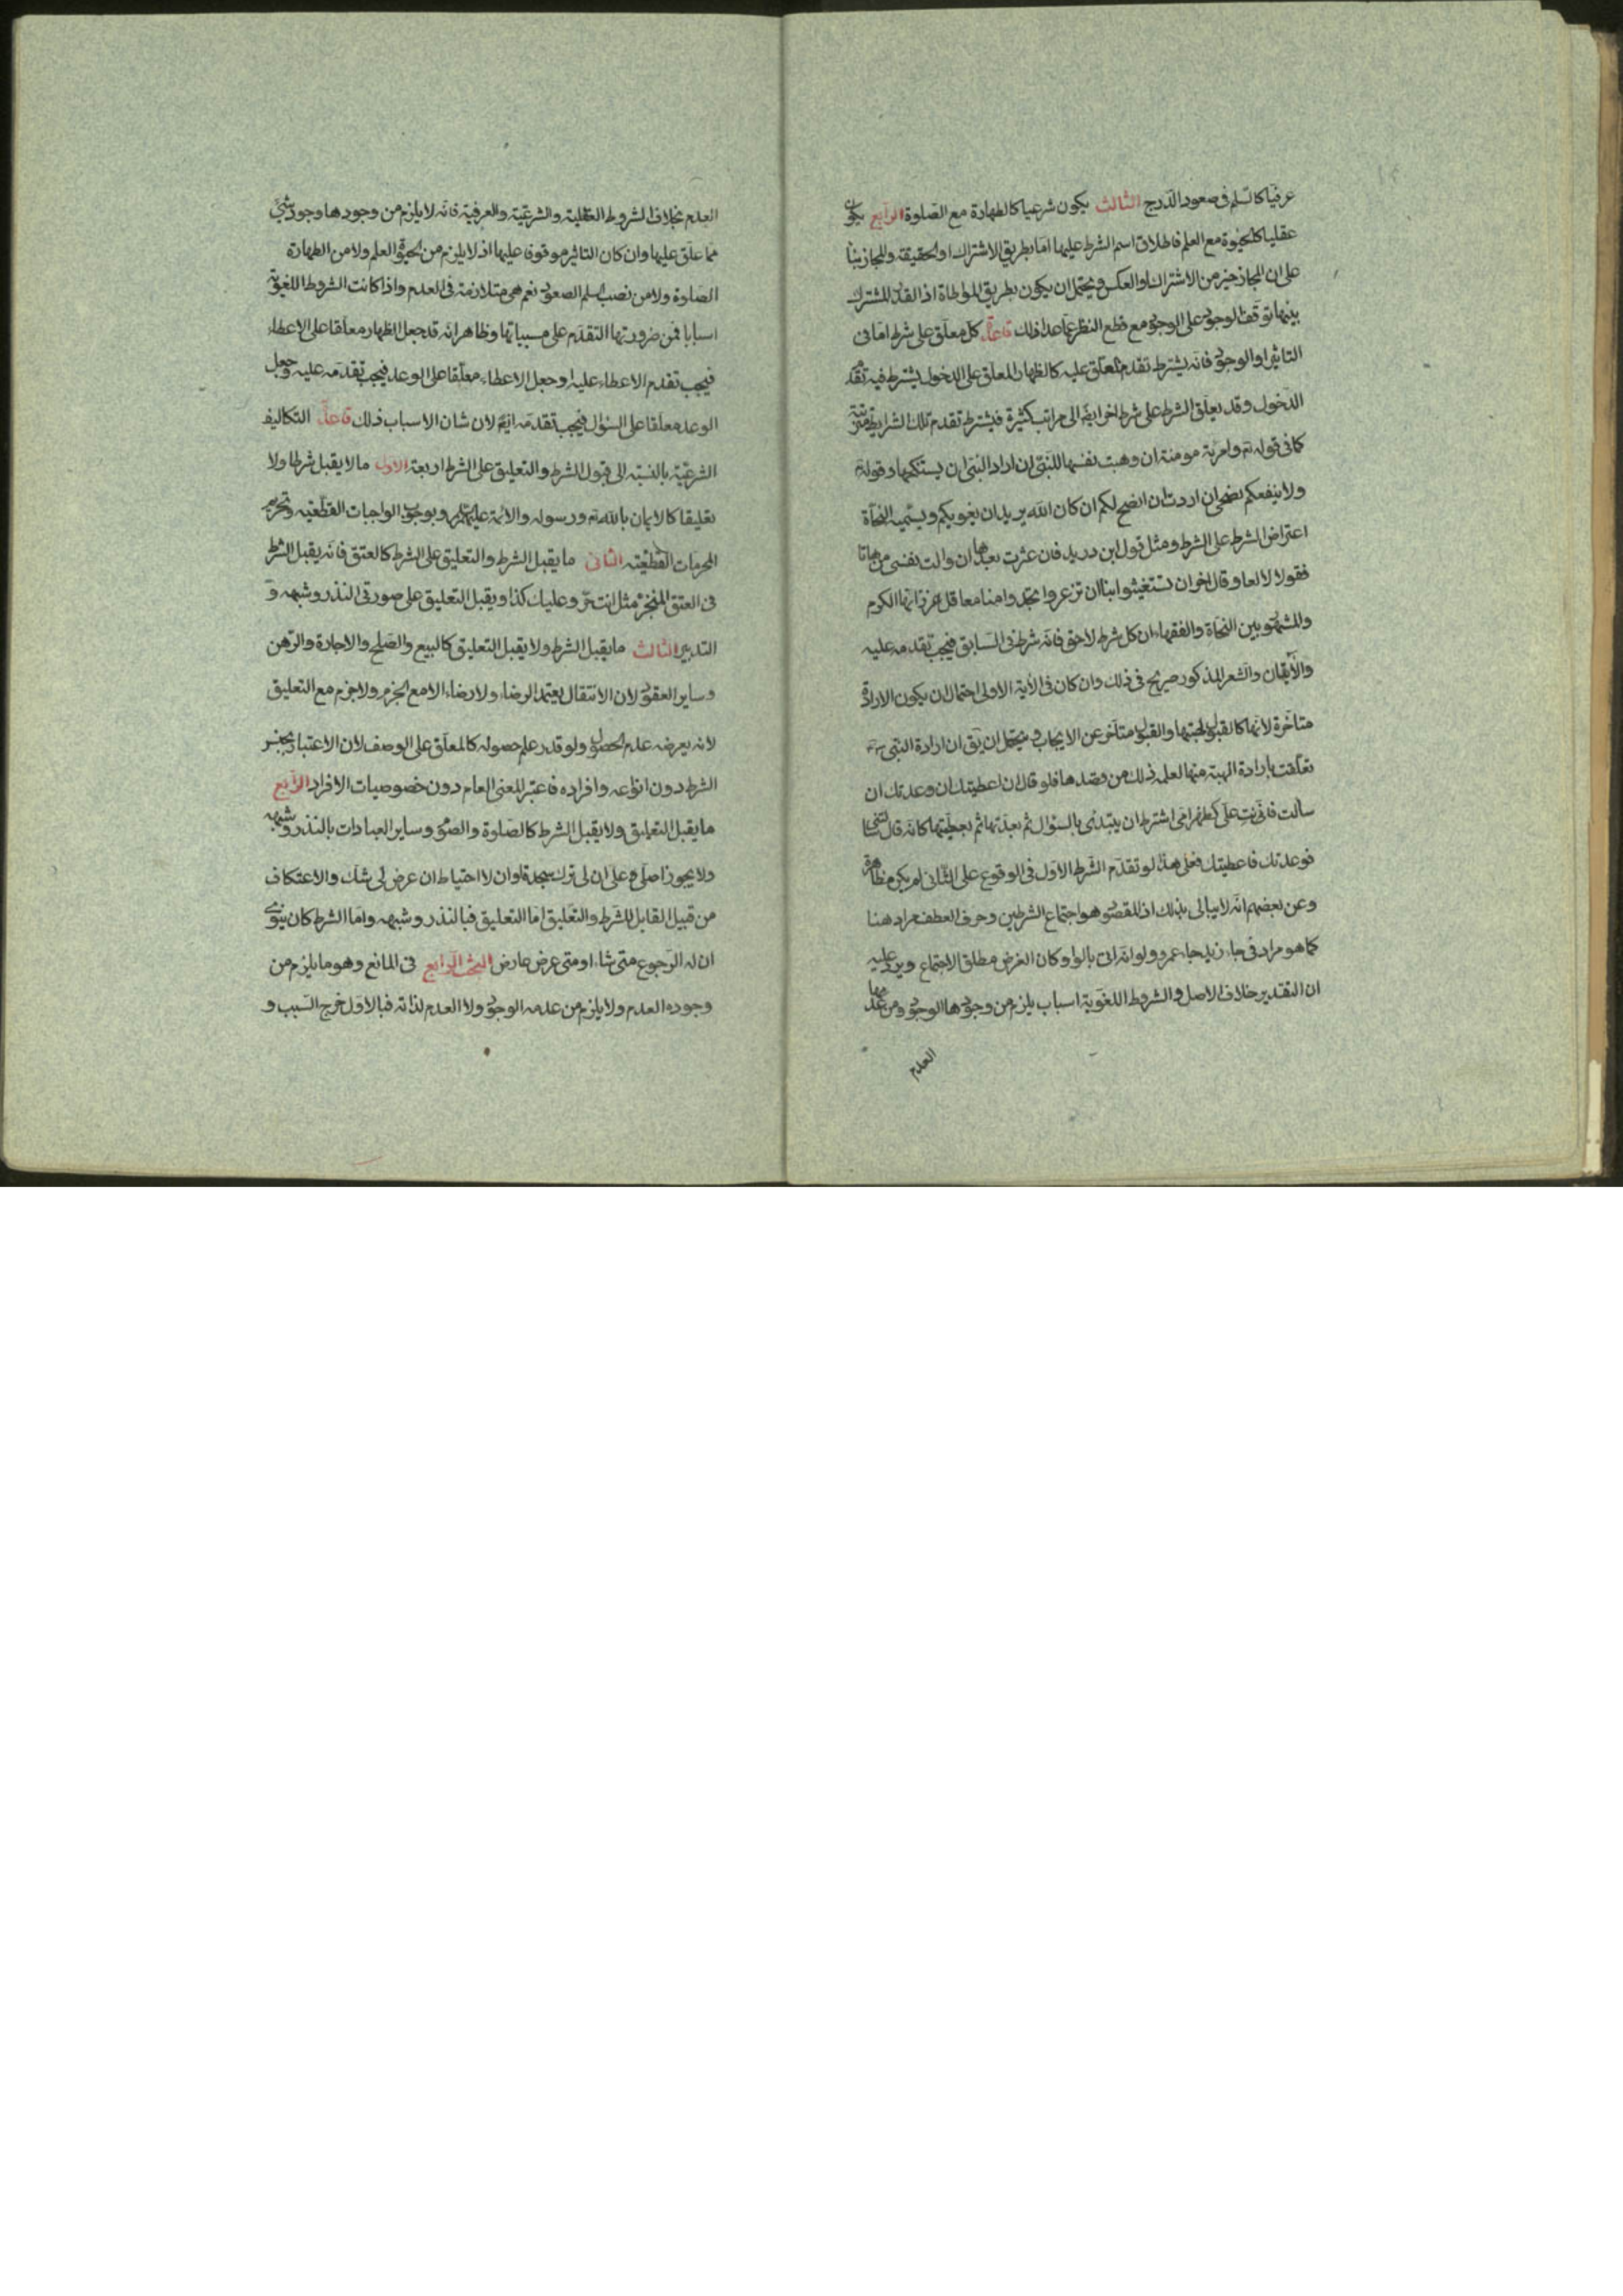 عرفيا كالسلم فى صعود الدرج الثالث يكون شرعيا كالطهارة مع الصلوة الرابع يكون
عقليا كالحيوة مع العلم فاطلاق اسم الشرط عليها اما بطريق الاشتراك او الحقيقة والمجاز بناء
على ان المجاز خير من الاشتراك او العكس ويحتمل ان يكون بطريق المواطاة اذ القدر المشترك
بينها توقف الوجود على الوجود مع قطع النظر عما عدا ذلك قاعدة كل معلق على شرط اما فى
التاثير او الوجود فانه يشترط تقدم المعلق عليه كالظهار المعلق على الدخول يشترط فيه تقدم
الدخول وقد يعلق الشرط على شرط اخر ايضا الى مراتب كثيرة فيشترط تقدم تلك الشرايط مترتبة
كما فى قوله تع وامرئة مومنة ان وهبت نفسها للنبى ان اراد النبى ان يستنكحها وقوله تع
ولا ينفعكم نصحى ان اردت ان انصح لكم ان كان الله يريد ان يغويكم ويسميه النحاة
اعتراض الشرط على الشرط ومثل قول ابن دريد فان عثرت بعدها ان والت نفسى من هاتا
فقولا لا لعا وقال اخر ان تستغيثوا بنا ان تزعروا تجدوا منا معاقل عز زانها الكرم
والمشهور بين النحاة والفقهاء ان كل شرط لاحق فانه شرط فى السابق فيجب تقدمه عليه
والآيتان والشعر المذكور صريح فى ذلك وان كان فى الاية الاولى احتمال ان يكون الارادة
متاخرة لانها كالقبول لهبتها والقبول متاخر عن الايجاب ويحتمل ان يق ان ارادة النبى ص
تعلقت بارادة الهبة منها لعلمه ذلك من قصدها فلو قال ان اعطيتك ان وعدتك ان
سالت فانت على كظهر امى اشترط ان يبتدئ بالسؤال ثم يعدتها ثم يعطيتها كانه قال
فوعدتك فاعطيتك فعلى هذا لو تقدم الشرط الاول فى الوقوع على الثانى لم يكن مظاهرة
وعن بعضهم انه لا يبالى بذلك اذ المقصود هو اجتماع الشرطين وحرف العطف مراد هنا
كما هو مراد فى جاء زيد جاء عمرو ولو انه اتى بالواو كان الغرض مطلق الاجتماع ويرد عليه
ان التقدير خلاف الاصل والشروط اللغوية اسباب يلزم من وجودها الوجود ومن عدمها
العدم
العدم بخلاف الشروط العقلية والشرعية والعرفية فانه لا يلزم من وجودها وجود شئ
مما علق عليها وان كان التاثير موقوفا عليها اذ لا يلزم من الحيوة العلم ولا من الطهارة
الصلوة ولا من نصب السلم الصعود نعم هى متلازمة فى العدم واذا كانت الشروط اللغوية
اسبابا فمن ضرورتها التقدم على مسبباتها وظاهر انه قد جعل الظهار معلقا على الاعطاء
فيجب تقدم الاعطاء عليه وجعل الاعطاء معلقا على الوعد فيجب تقدمه عليه وجعل
الوعد معلقا على السؤال فيجب تقدمه ايضا لان شان الاسباب ذلك قاعدة التكاليف
الشرعية بالنسبة الى قبول الشرط والتعليق على الشرط اربعة الاول ما لا يقبل شرطا ولا
تعليقا كالايمان بالله تع ورسوله والائمة عليهم السلم وبوجوب الواجبات القطعية وتحريم
المحرمات القطعية الثانى ما يقبل الشرط والتعليق على الشرط كالعتق فانه يقبل الشرط
فى العتق المنجز مثل انت حر وعليك كذا ويقبل التعليق على صورتى النذر وشبهه و
التدبير الثالث ما يقبل الشرط ولا يقبل التعليق كالبيع والصلح والاجارة والرهن
وساير العقود لان الانتقال يعتمد الرضاء ولا رضاء الا مع الجزم ولا جزم مع التعليق
لانه يعرضه عدم الحصول ولو قدر علم حصوله كالمعلق على الوصف لان الاعتبار بجنس
الشرط دون انواعه وافراده فاعتبر المعنى العام دون خصوصيات الافراد الرابع
ما يقبل التعليق ولا يقبل الشرط كالصلوة والصوم وساير العبادات بالنذر وشبهه
ولا يجوز اصلى على ان لى ترك سجدة او ان لا احتياط ان عرض لى شك والاعتكاف
من قبيل القابل للشرط والتعليق اما التعليق فبالنذر وشبهه واما الشرط كان ينوى
ان له الرجوع متى شاء او متى عرض عارض البحث الرابع فى المانع وهو ما يلزم من
وجوده العدم ولا يلزم من عدمه الوجود ولا العدم لذاته فبالاول خرج السبب و